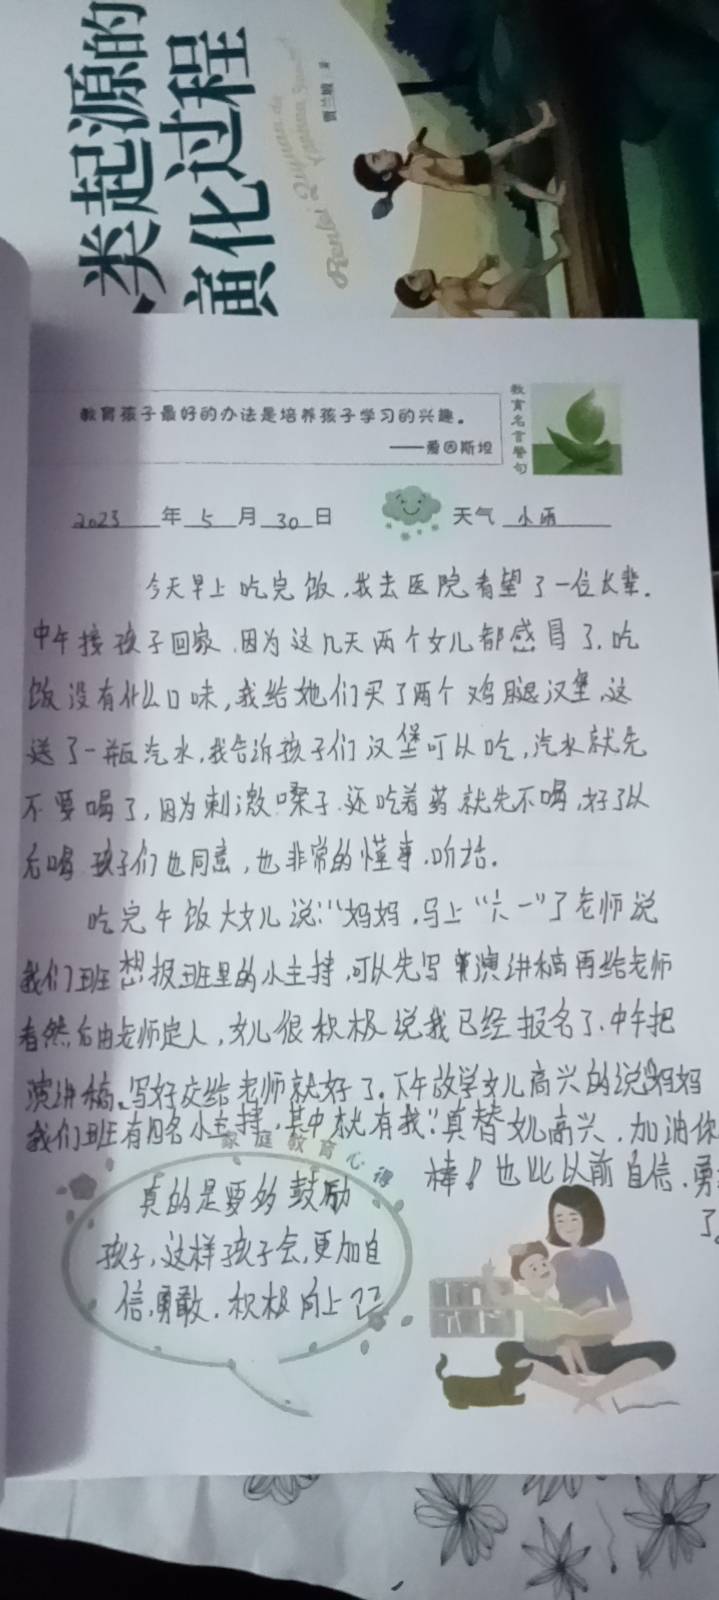 类起源的
演化过程
贾兰坡 著
教育孩子最好的办法是培养孩子学习的兴趣。
——爱因斯坦
教育名言警句
2023年5月30日 天气 小雨
今天早上吃完饭，我去医院看望了一位长辈.
中午接孩子回家.因为这几天两个女儿都感冒了.吃
饭没有什么口味,我给她们买了两个鸡腿汉堡.这
送了一瓶汽水,我告诉孩子们汉堡可以吃,汽水就先
不要喝了,因为刺激嗓子.还吃着药就先不喝,好了以
后喝 孩子们也同意,也非常的懂事.听话.
吃完午饭大女儿说:"妈妈.马上"六一"了老师说
我们班想报班里的小主持,可以先写演讲稿再给老师
看然后由老师定人,女儿很积极说我已经报名了.中午把
演讲稿写好交给老师就好了.下午放学女儿高兴的说妈妈
我们班有四名小主持,其中就有我"真替女儿高兴.加油你
棒!也比以前自信.勇
了。
家庭教育心得
真的是要多鼓励
孩子,这样孩子会更加自
信.勇敢.积极向上